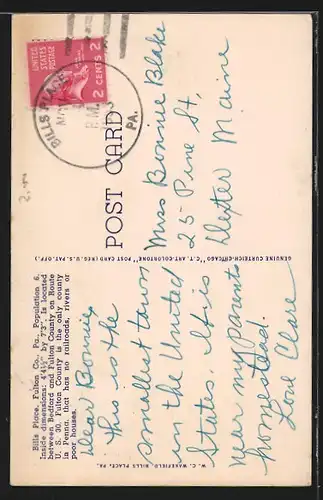 Bills Place, Fulton Co., Pa. Population 6.
Inside dimensions: 4'4½" by 7'3". Is located
between Bedford and Fulton County on Route
U. S. 30. Fulton County is the only county
in Penna. that has no railroads, rivers or
poor houses.
Dear Bonnie,
This is the
smallest town
in the United
States. It is
near my parents
homestead.
Love Clare
W. C. WAKEFIELD, BILLS PLACE, PA.
POST CARD
GENUINE CURTEICH-CHICAGO "C.T. ART-COLORTONE" POST CARD (REG. U.S. PAT. OFF.)
BILLS PLACE
P.M.
PA.
UNITED
STATES
POSTAGE
2 CENTS 2
Miss Bonnie Blake
25 Pine St.
Dexter Maine